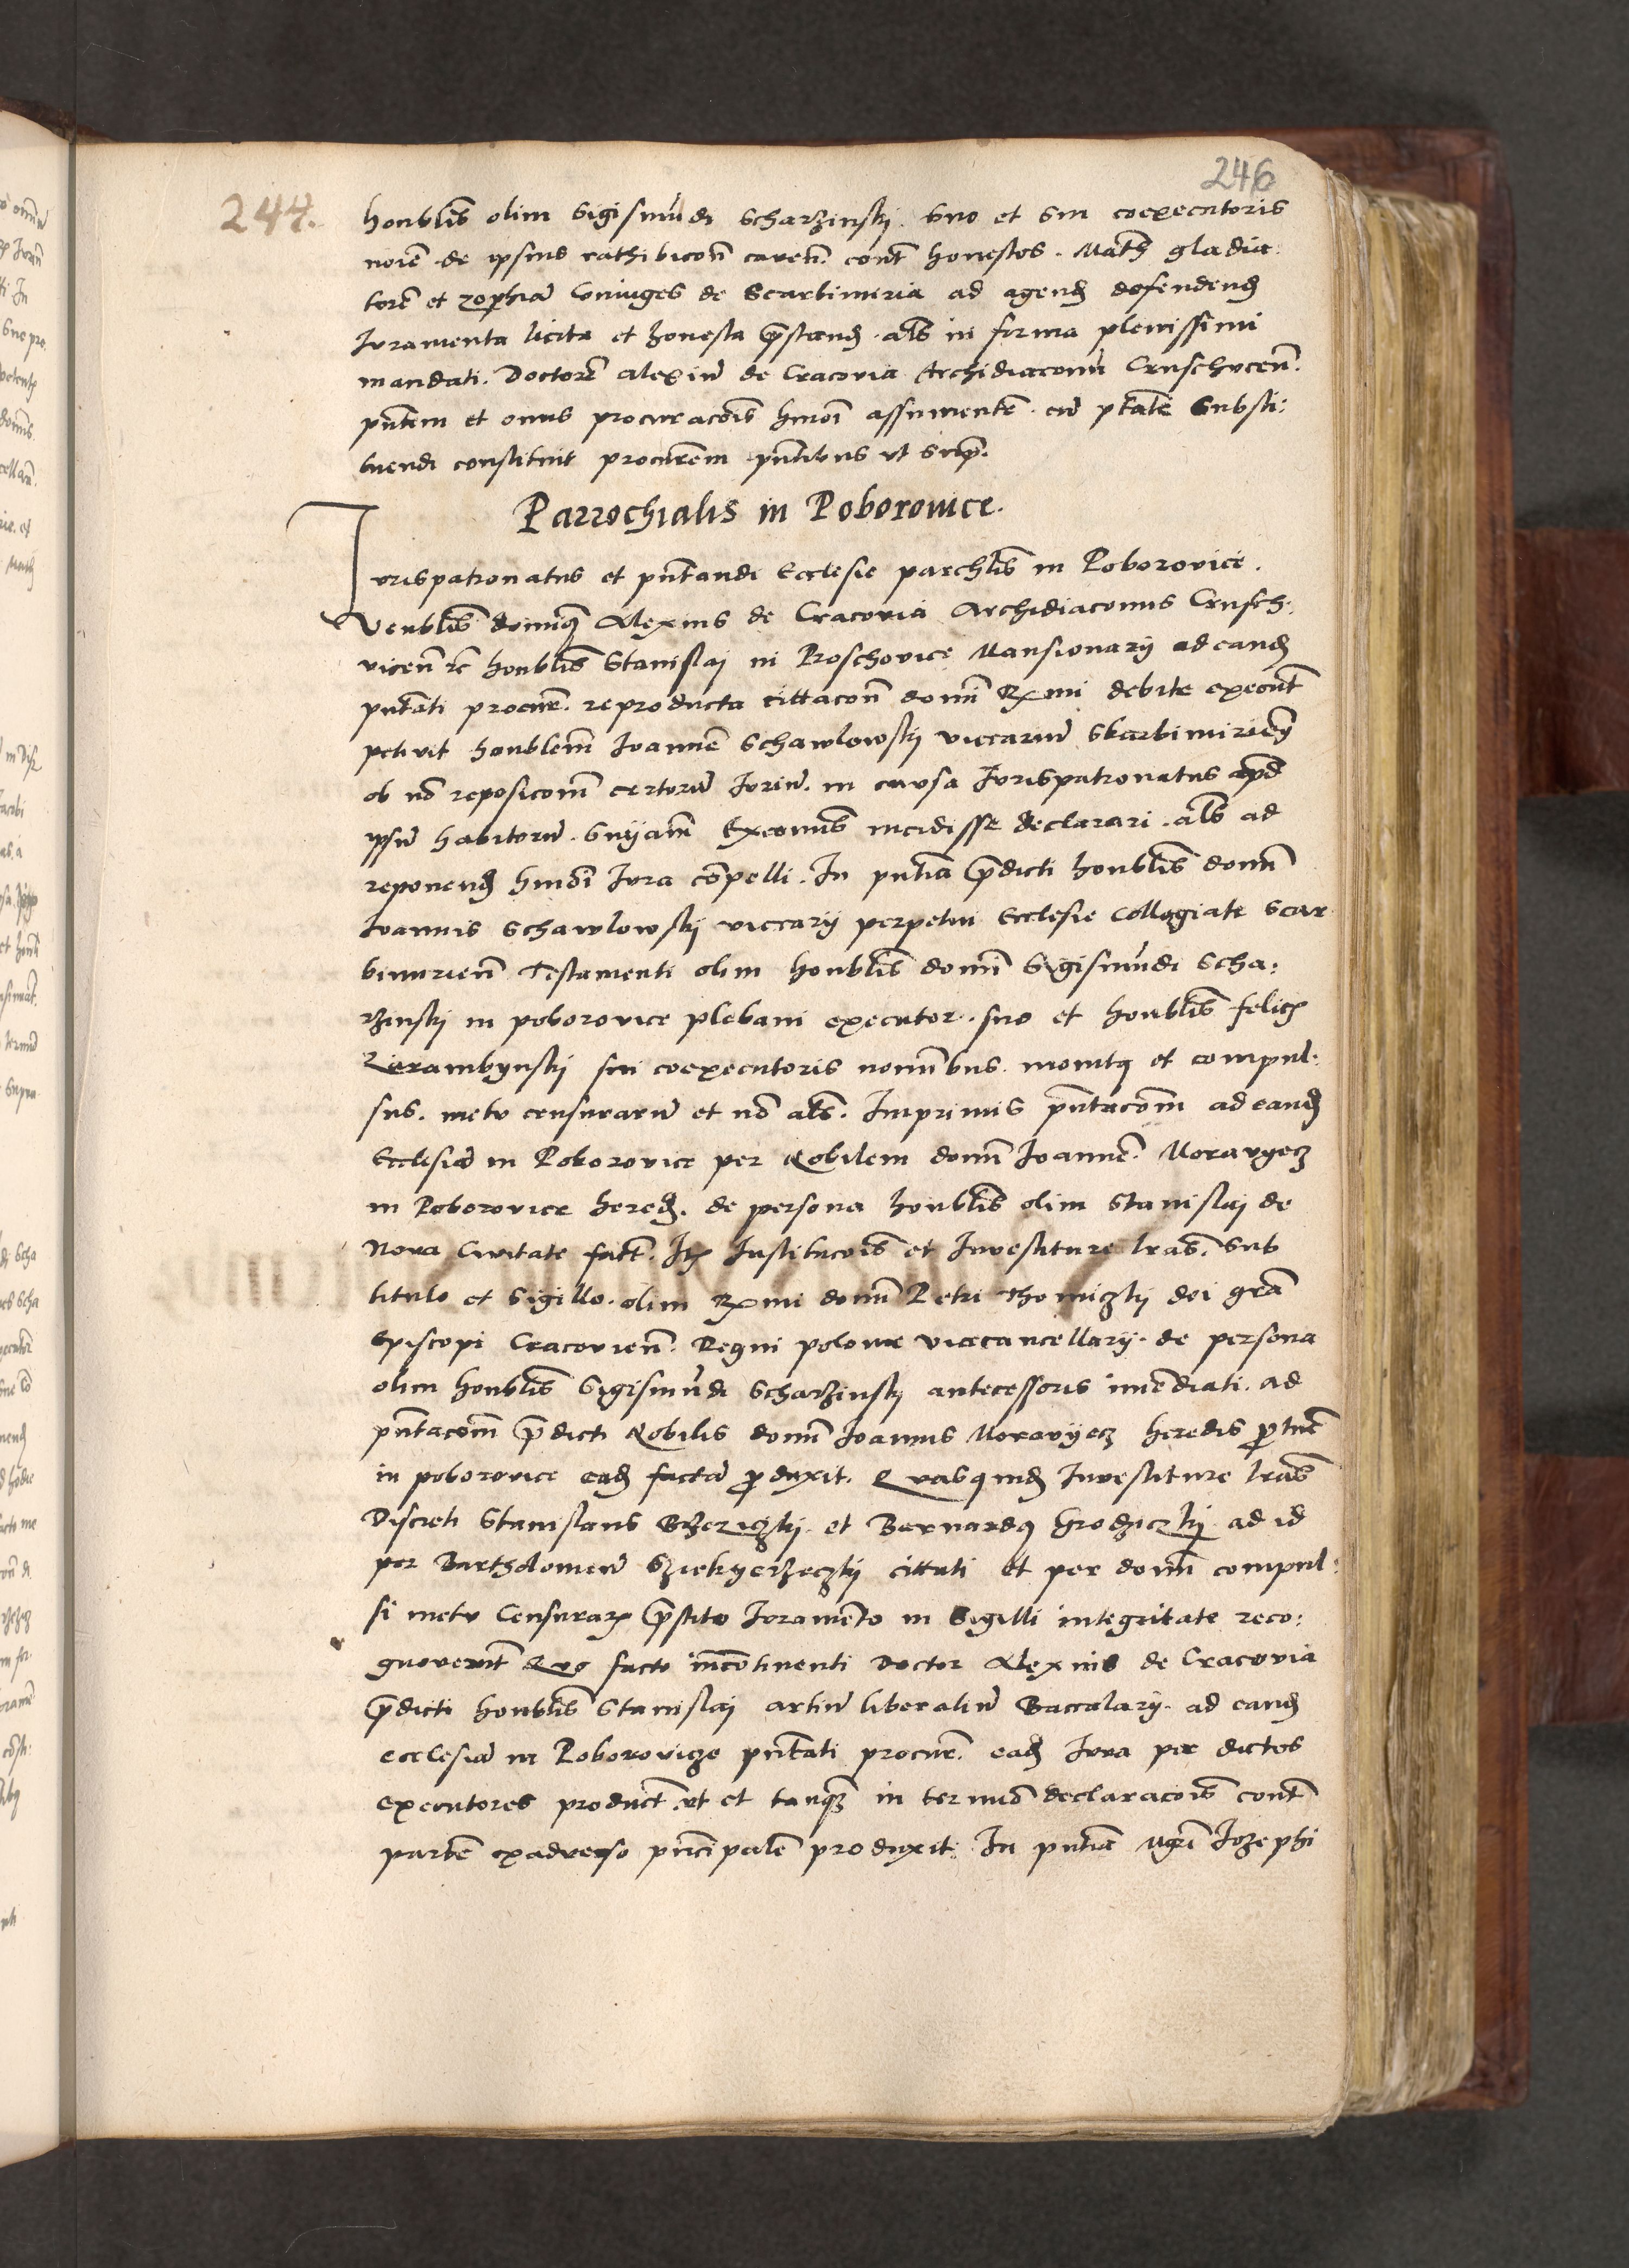 246
244.
honblis olim Sigismūdi Scharzinskÿ. suo et sui coexecutoris
noīe de ipsius rathibicōn caven. contͣ honestos. Math gladia:
torē et zophiā Coniuges de Scarbimiria ad agend defendend
Iuramenta licita et honesta p̄stand. als in forma plenissimi
mandati. Doctorē alexiū de Cracovia Archidiaconū Crusch vicen̄.
pn̄tem et onus procuracōis hmōi assumentē. cū ptāte Substi:
tuendi constituit procurēm pn̄tibus ut sup̄.
Parrochialis in Poborovice.
Iurispatronatus et pn̄tandi Ecclesie parchlis in Poborovice.
Venblis dominꝰ Alexius de Cracovia Archidiaconus Crusch:
vicen̄ rc honblis Stanislaj in Proschovice Mansionarÿ ad eand
pn̄tati procur. reproducta cittacōn domī Rx̄mi debite execut
petivit honblem̄ Ioannē Schawlowskÿ viccariū Skarbimirien
ob nō reposicōm certorū Iuriū. in causa Iurispatronatus apd
ipsū habitorū. Snīam Excoīnis incidisse declarari. als ad
reponend hmōi Iura cōpelli. In pn̄tia p̄dicti honblis domī
Ioannis Schawlowskÿ viccarÿ perpetui Ecclesie Collegiate Scar
bimirien̄ Testamenti olim honblis domī Sigismūdi Scha:
rzinskÿ in poborovice plebani executor. suo et honblis felicꝭ
Zierambynskÿ sui coexecutoris nominibus. monitꝰ et compul:
sus. metu censurarū et nō als. Inprimis pn̄tacōm ad eand
Ecclesiā in Poborovice per Nobilem domī Ioannē. Moravyecz
in Poborovice hered. de persona honblis olim Stanislaj de
Nova Civitate fact. Itꝫ Institucōis et Investiture lras. sub
titulo et Sigillo. olim Rx̄mi domī Petri Thomiczkÿ dei gr̄a
Episcopi Cracovien̄. Regni polonie vicecancellarÿ. de persona
olim honblis Sigismūdi Scharzinskÿ antecessoris imēdiati. ad
pn̄tacōm p̄dicti Nobilis domī Ioannis Moravyecz heredis p̄tunc
in poborovice ead factā p̄duxit. Quasquid Investiture lras
Discreti Stanislaus Bzeziczkÿ. et Bernardꝰ Grodziczkÿ ad id
per Bartholomeū Sziekyerzeczkÿ cittati et per domī compul:
si metu Censurarꝫ p̄stito Iuramento in Sigilli integritate reco:
gnoverūt Quo facto incōtinenti Doctor Alexius de Cracovia
p̄dicti honblis Stanislaj artiū liberaliū Baccalarÿ. ad eand
ecclesiā in Poborovicze pn̄tati procur. ead Iura per dictos
executores product. ut et tanqꝫ in terminō declaracōis contͣ
partē exadverso pn̄cipalē produxit. In pn̄tia Mgri Iozephi